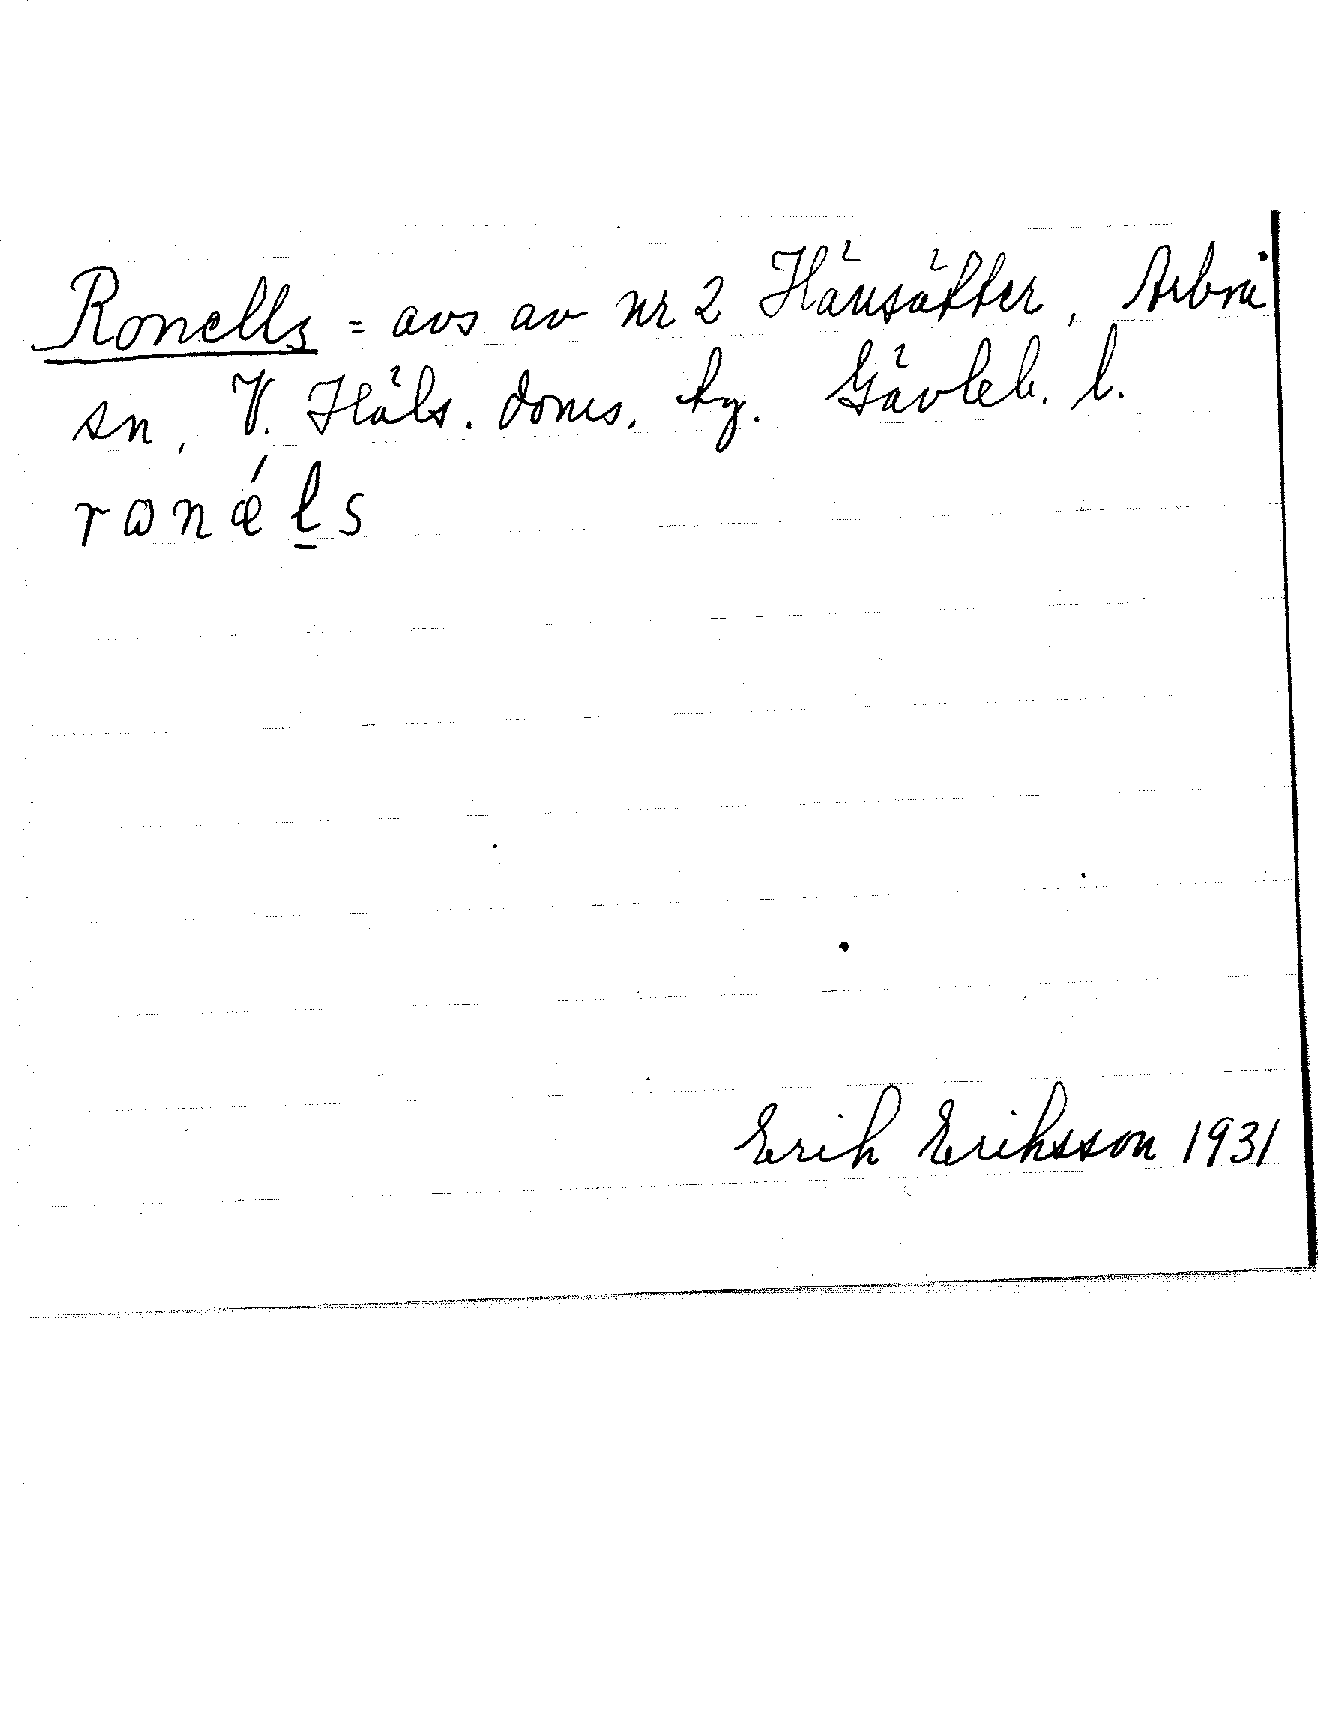 Ronells = avs av nr 2 Hänsätter, Arbrå
sn, V. Häls. doms. tg. Gävleb. l.
ronǽl̲s
Erik Eriksson 1931